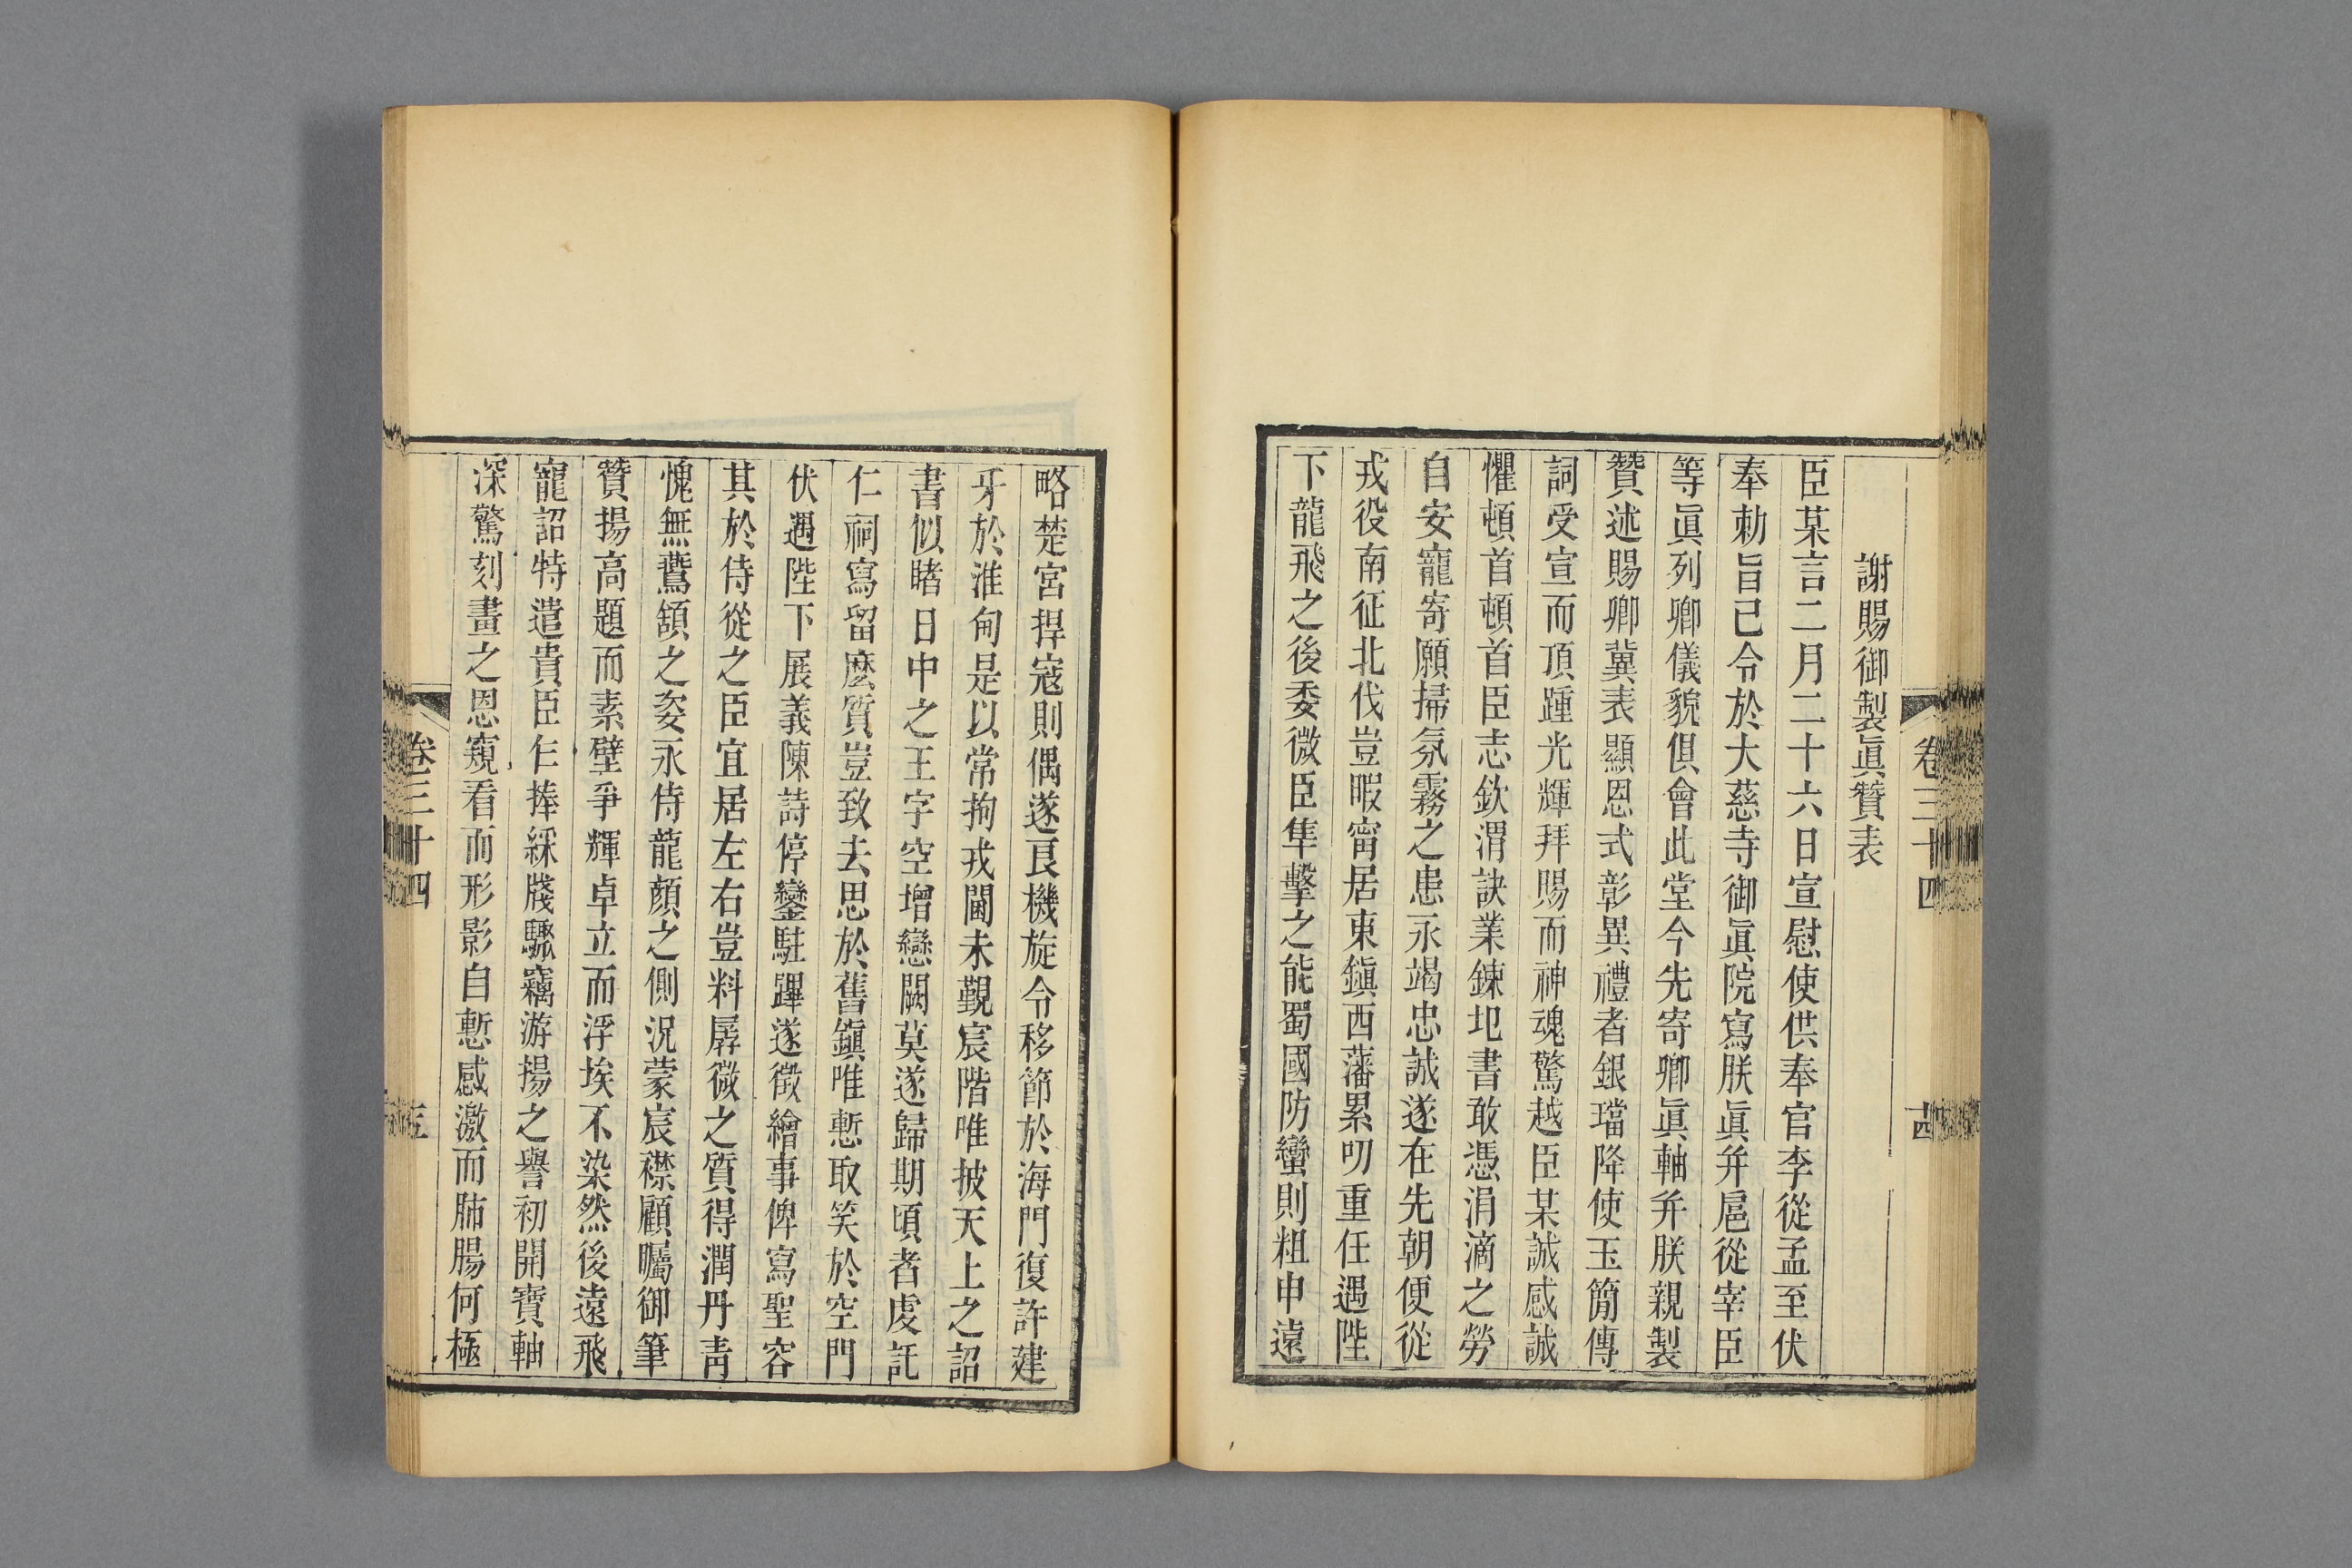 卷三十四
謝賜御製眞贊表
臣某言二月二十六日宣慰使供奉官李從孟至伏
奉勅旨己令於大慈寺御眞院寫朕眞幷扈從宰臣
等眞列卿儀貌俱會此堂今先寄卿眞軸幷朕親製
贊述賜卿冀表顯恩式彰異禮者銀璫降使玉簡傳
詞受宣而頂踵光輝拜賜而神魂驚越臣某誠感誠
懼頓首頓首臣志欽渭訣業鍊圯書敢憑涓滴之勞
自安寵寄願掃氛霧之患永竭忠誠遂在先朝便從
戎役南征北伐豈暇甯居東鎭西藩累叨重任遇陛
下龍飛之後委微臣隼擊之能蜀國防蠻則粗申遠
略楚宮捍寇則偶遂良機旋令移節於海門復許建
牙於淮甸是以常拘戎閫未覲宸階唯披天上之詔
書似睹日中之王字空增戀闕莫遂歸期頃者虔託
仁祠寫留麽質豈致去思於舊鎭唯慙取笑於空門
伏遇陛下展義陳詩停鑾駐蹕遂徵繪事俾寫聖容
其於侍從之臣宜居左右豈料孱微之質得潤丹靑
愧無鷰頷之姿永侍龍顏之側況蒙宸襟顧矚御筆
贊揚高題而素壁爭輝卓立而浮埃不染然後遠飛
寵詔特遣貴臣仨捧綵牋驟竊游揚之譽初開寶軸
深驚刻畫之恩窺看而形影自慙感激而肺腸何極
卷三十四